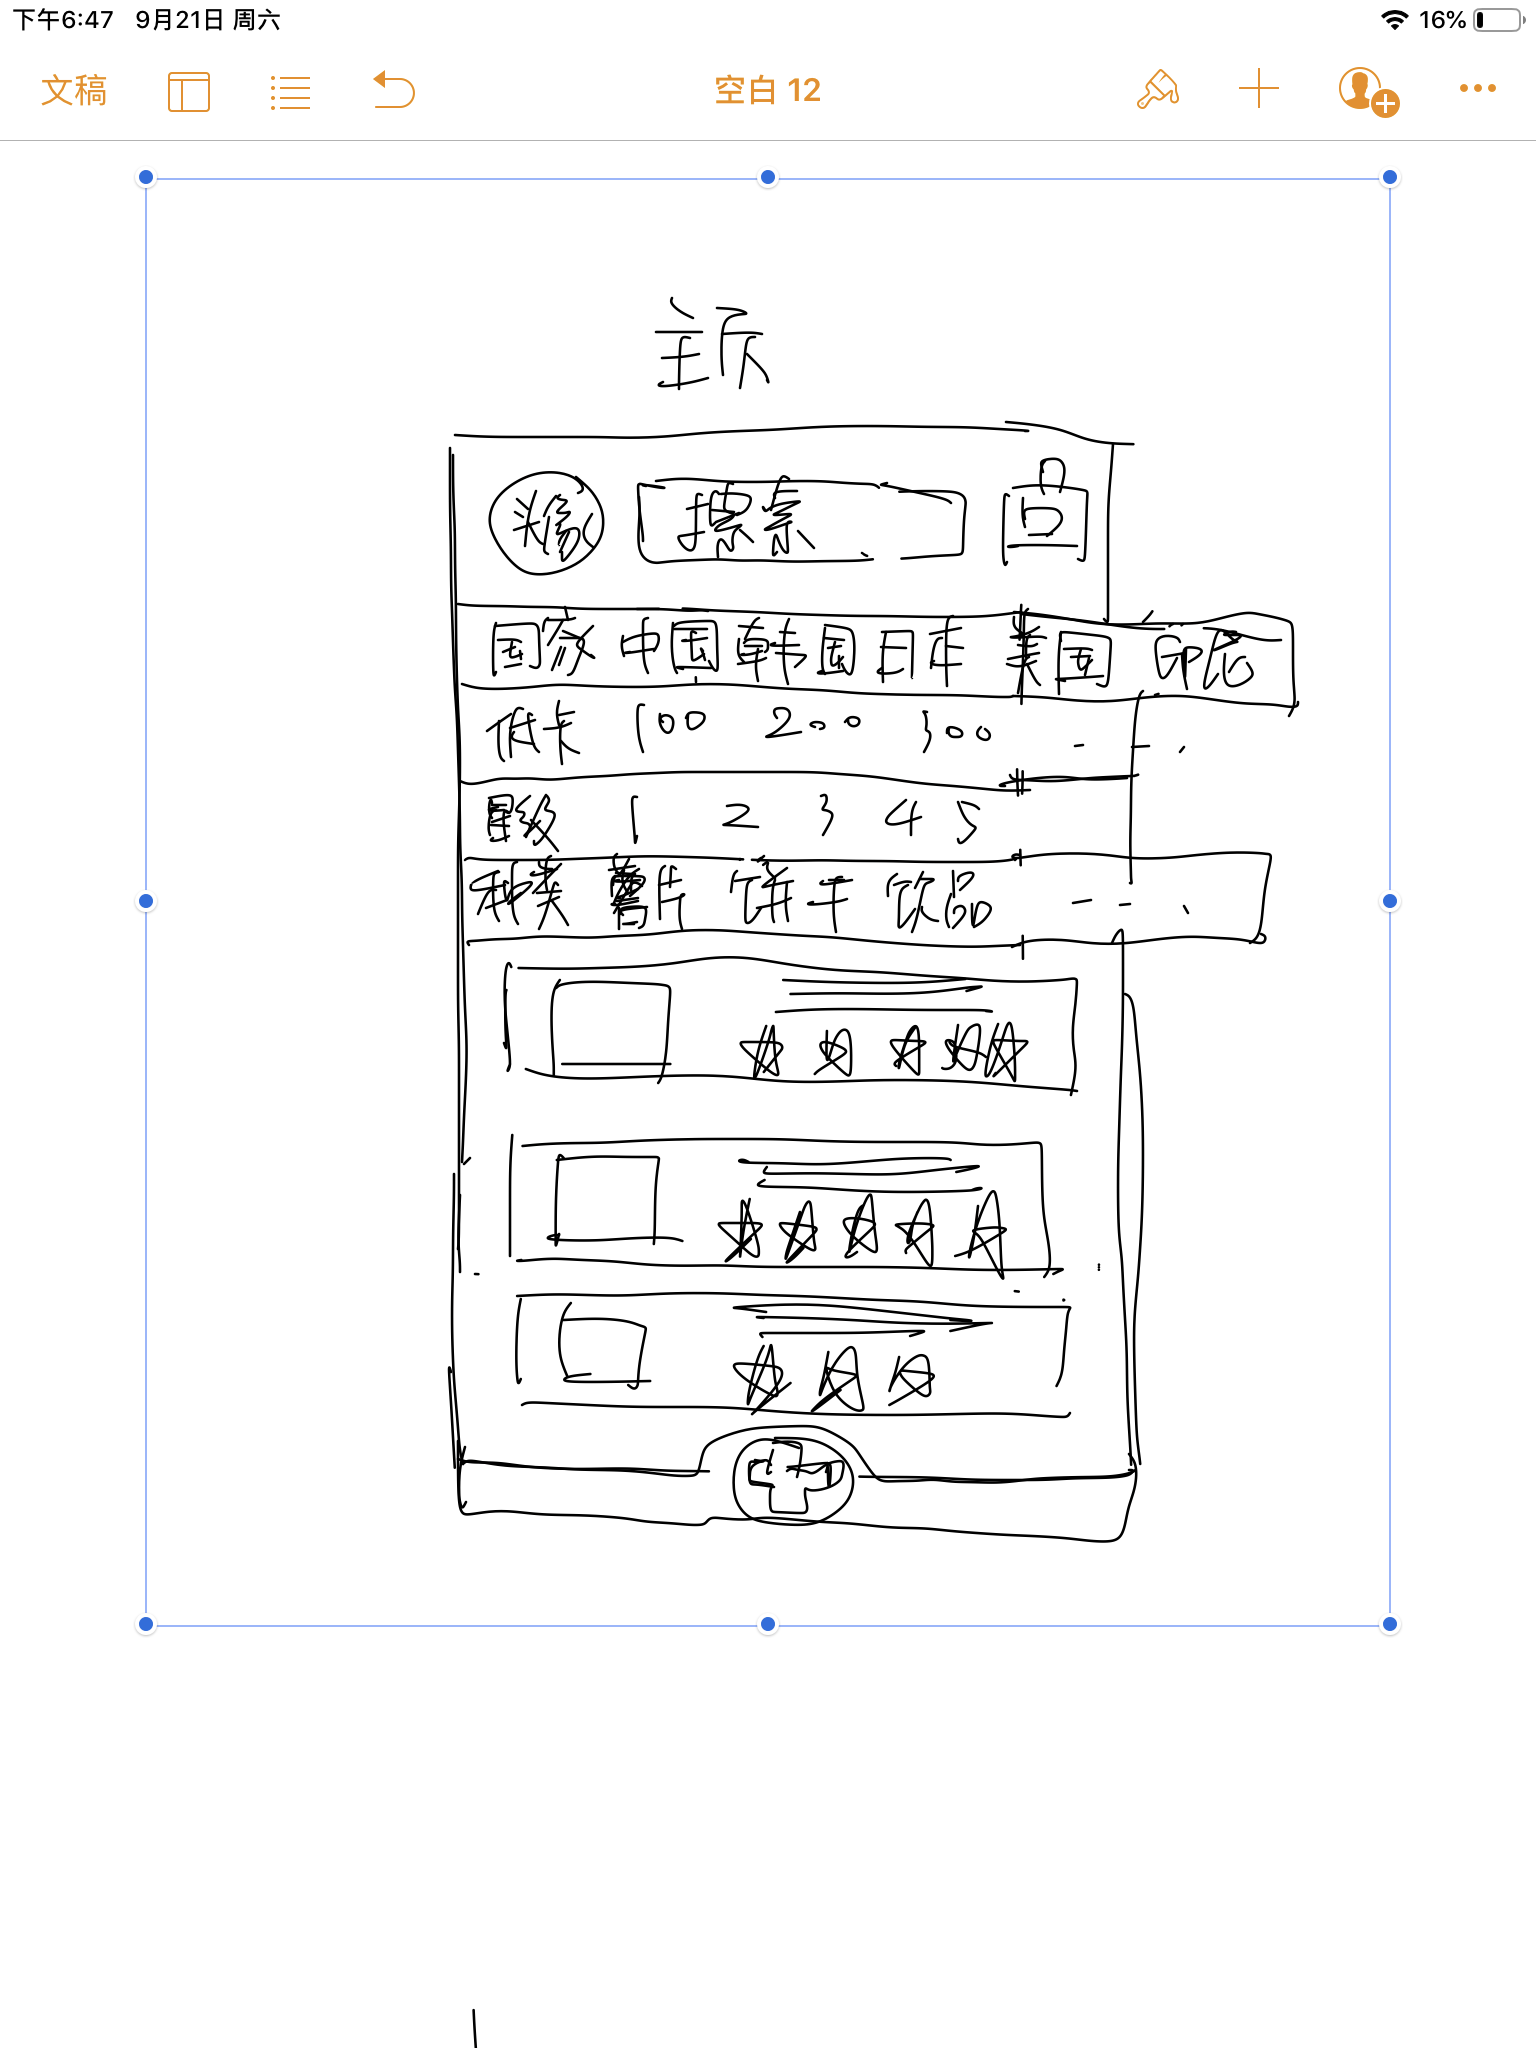 下午6:47 9月21日 周六 16%
文稿 空白 12
主页
头像 探索
国家 中国 韩国 日本 美国 印尼
低卡 100 200 300
星级 1 2 3 4 5
种类 薯片 饼干 饮品